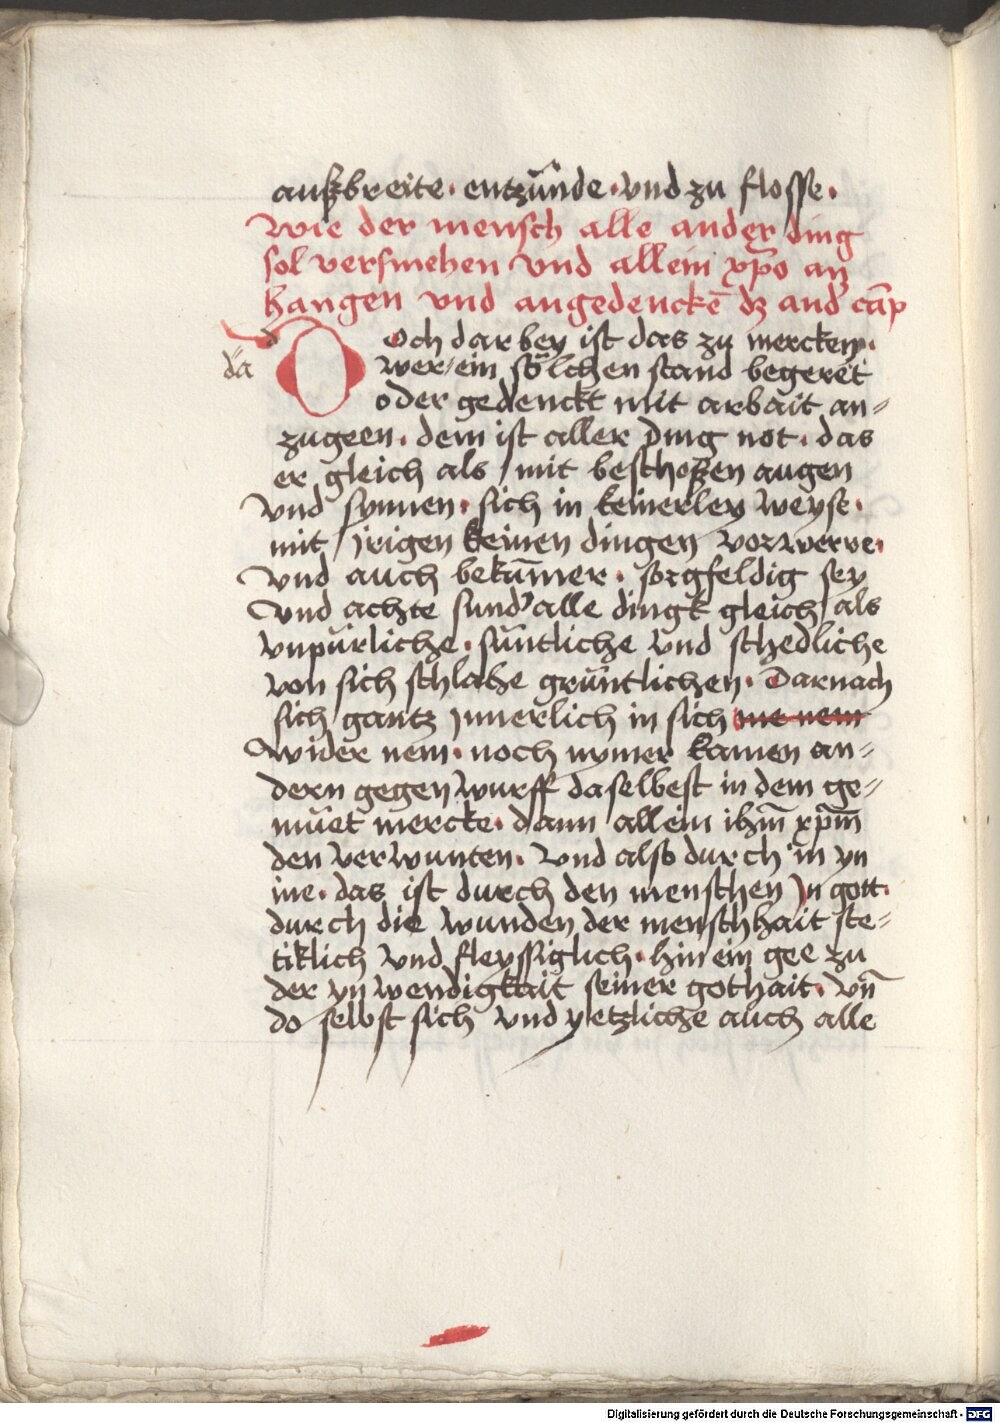 außbreite · entzünde · vnd zu flosse ·
Wie der mensch alle ander ding
sol versmehen vnd allein xp̄o an
hangen vnd angedenckē dz and' cāp
d
Doch dar bey ist das zu mercken ·
da
wer ein sölchen stand begeret
oder gedenckt mit arbait an-
zugeen · dem ist aller ding not · das
er gleich als mit beschoßen augen
vnd synnen · sich in keinerley weyse ·
mit jrigen keinen dingen vorwerre ·
vnd auch bekūmer · sorgfeldig sey
vnd achte sund' alle dingk gleich als
vnpürliche · süntliche vnd schedliche
von sich schlahe grüntlichen · Darnach
sich gantz jnnerlich in sich me nem
wider nem · noch nymer kainen an-
dern gegenwurff daselbest in dem ge-
müet mercke · dann allein ihm̄ xp̄m̄
den verwunten · vnd also durch in yn
ine · das ist durch den menschen jn gott ·
durch die wunden der menschhait ste-
tiklich vnd fleyssiglich · hin ein gee zu
der ynwendigkait seiner gothait · vn̄
do selbst sich vnd yetzliche auch alle
Digitalisierung gefördert durch die Deutsche Forschungsgemeinschaft - DFG